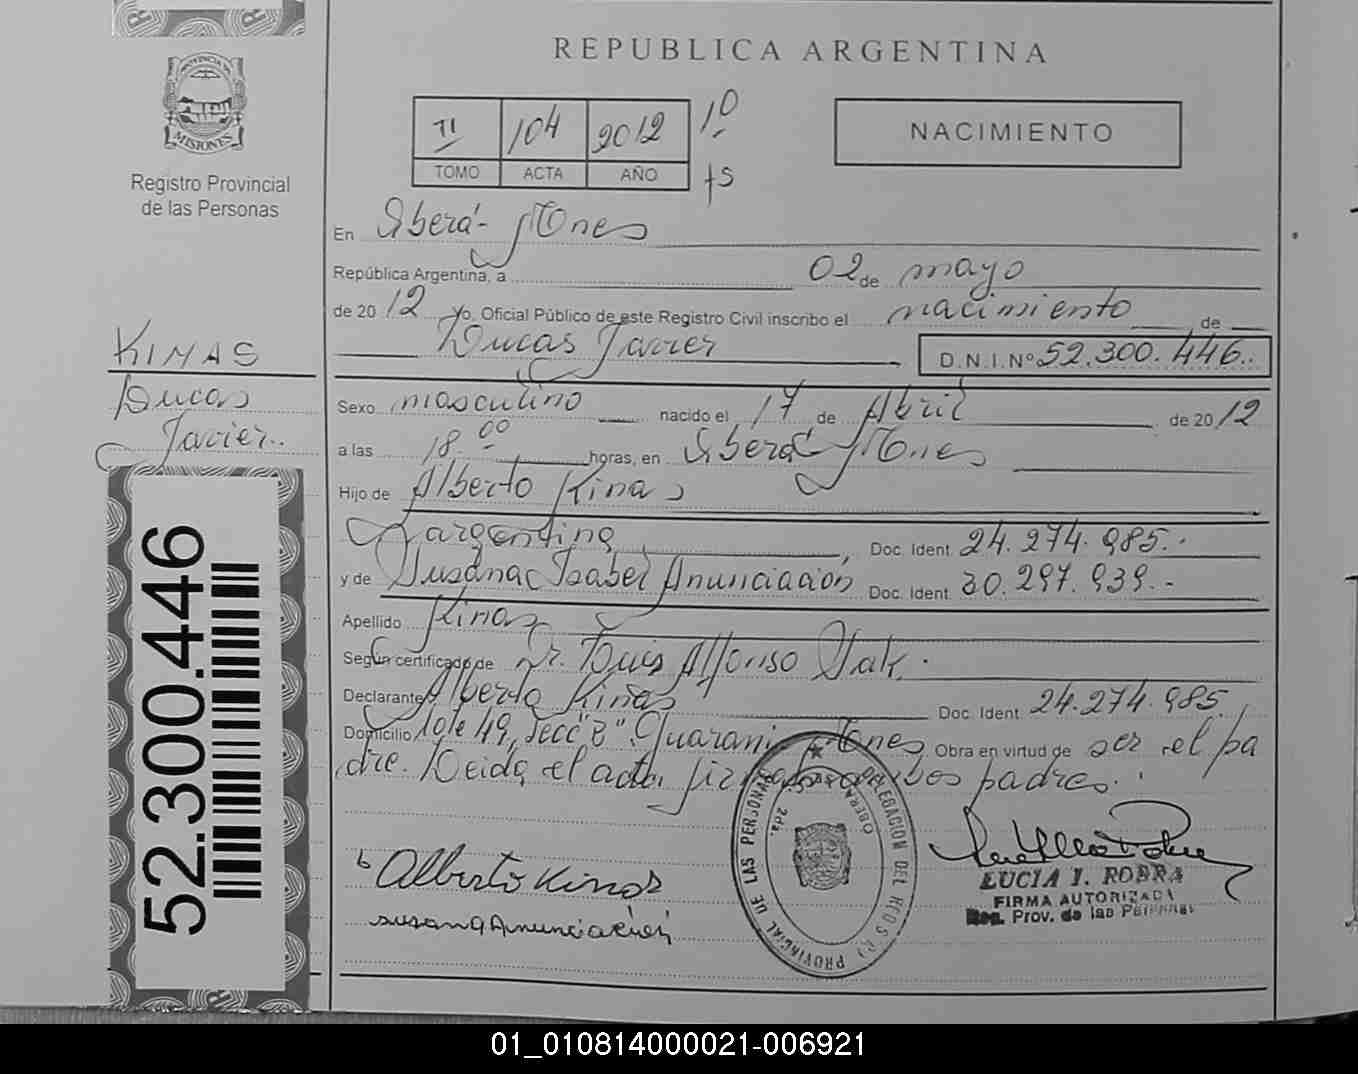 REPUBLICA ARGENTINA
PROVINCIA DE
MISIONES
Registro Provincial
de las Personas
TI 104 2012 1º
TOMO ACTA AÑO fs
NACIMIENTO
En Oberá - Mnes
República Argentina, a 02 de mayo
de 2012 Yo, Oficial Público de este Registro Civil inscribo el nacimiento de
Lucas Javier D.N.I.Nº 52.300.446..
KINAS
Lucas
Javier..
Sexo masculino nacido el 17 de Abril de 2012
a las 18.00 horas, en Oberá - Mnes
Hijo de Alberto Kinas
argentina Doc. Ident. 24.274.985.-
y de Susana Isabel Anunciación Doc. Ident. 30.297.939.-
Apellido Kinas
Según certificado de Dr. Luis Alfonso
Declarante Alberto Kinas Doc. Ident. 24.274.985.
Domicilio lote 49, Secc "B", Guaraní, Mnes Obra en virtud de ser el pa
dre. Leida el acta, firman ambos padres.
52.300.446
Alberto Kinas
susana Anunciación
PROVINCIAL DE LAS PERSONAS
DELEGACION DEL REGISTRO
OBERA
2da.
LUCIA I. RODRA
FIRMA AUTORIZADA
Reg. Prov. de las Personas
01_010814000021-006921